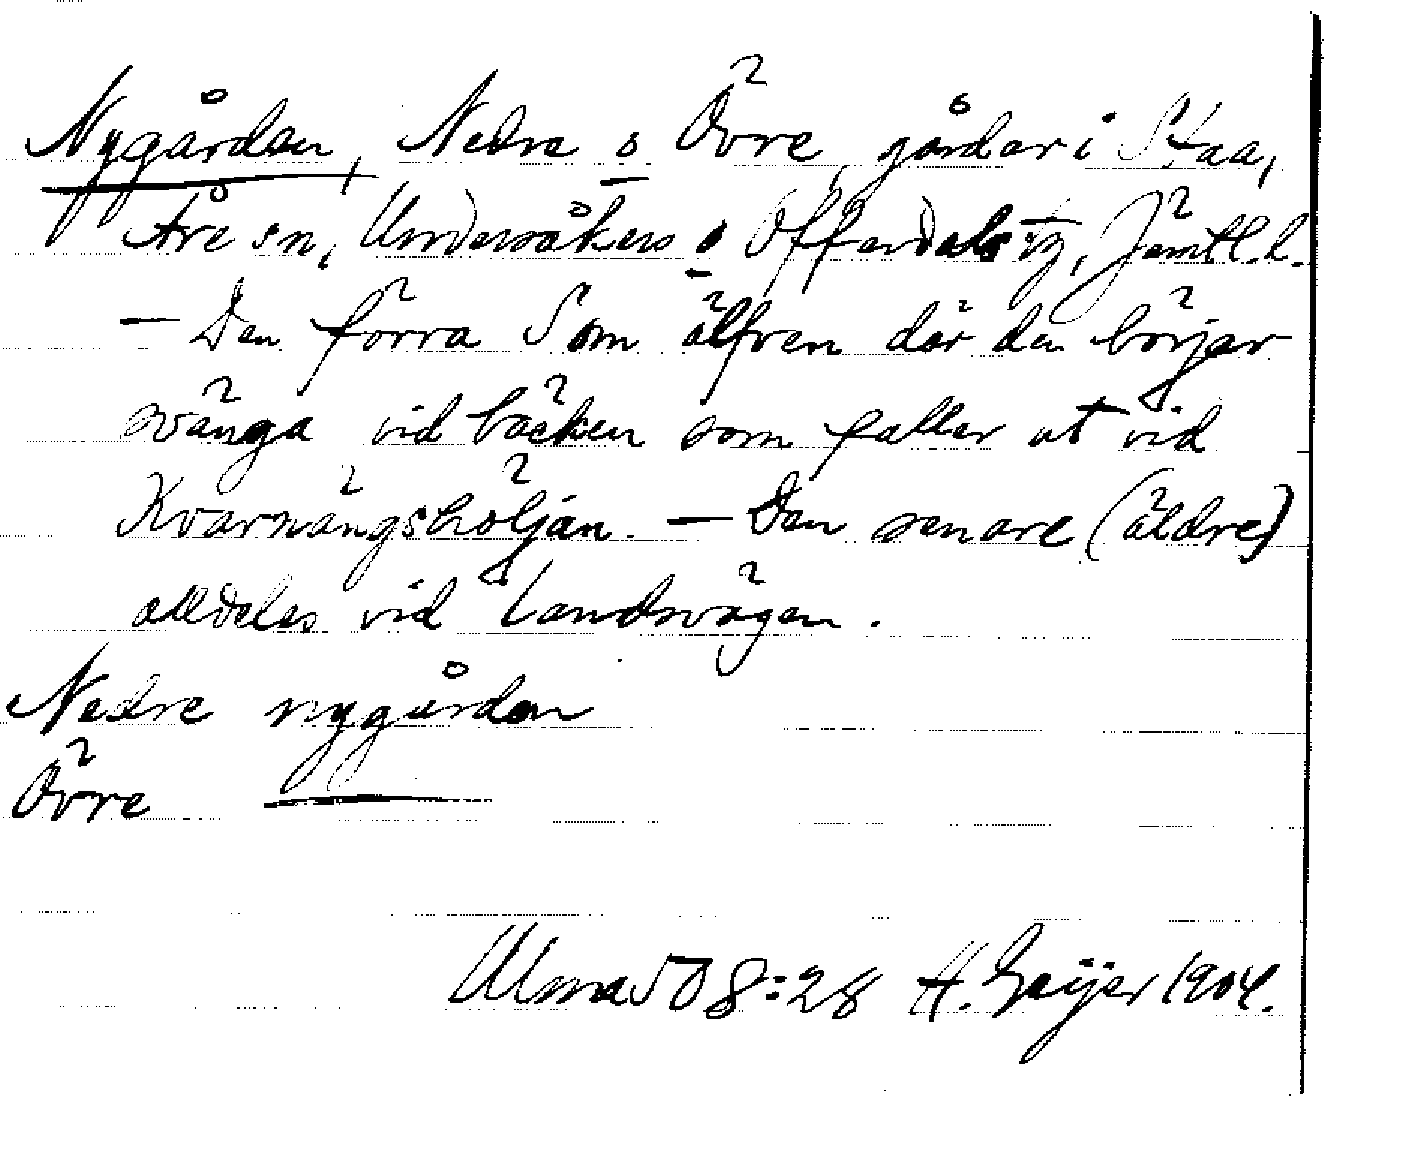 Nygården, Nedre o Övre, gårdar i Staa,
Åre sn, Undersåkers o Offerdals tg, Jämtl. l.
— Den förra Som älfven där den börjar
svänga vid bäcken som faller ut vid
Kvarnängshöljan. — Den senare (äldre)
alldeles vid landsvägen.
Nedre nygården
Övre ———
Ulma 508:28 H. Geijer 1904.